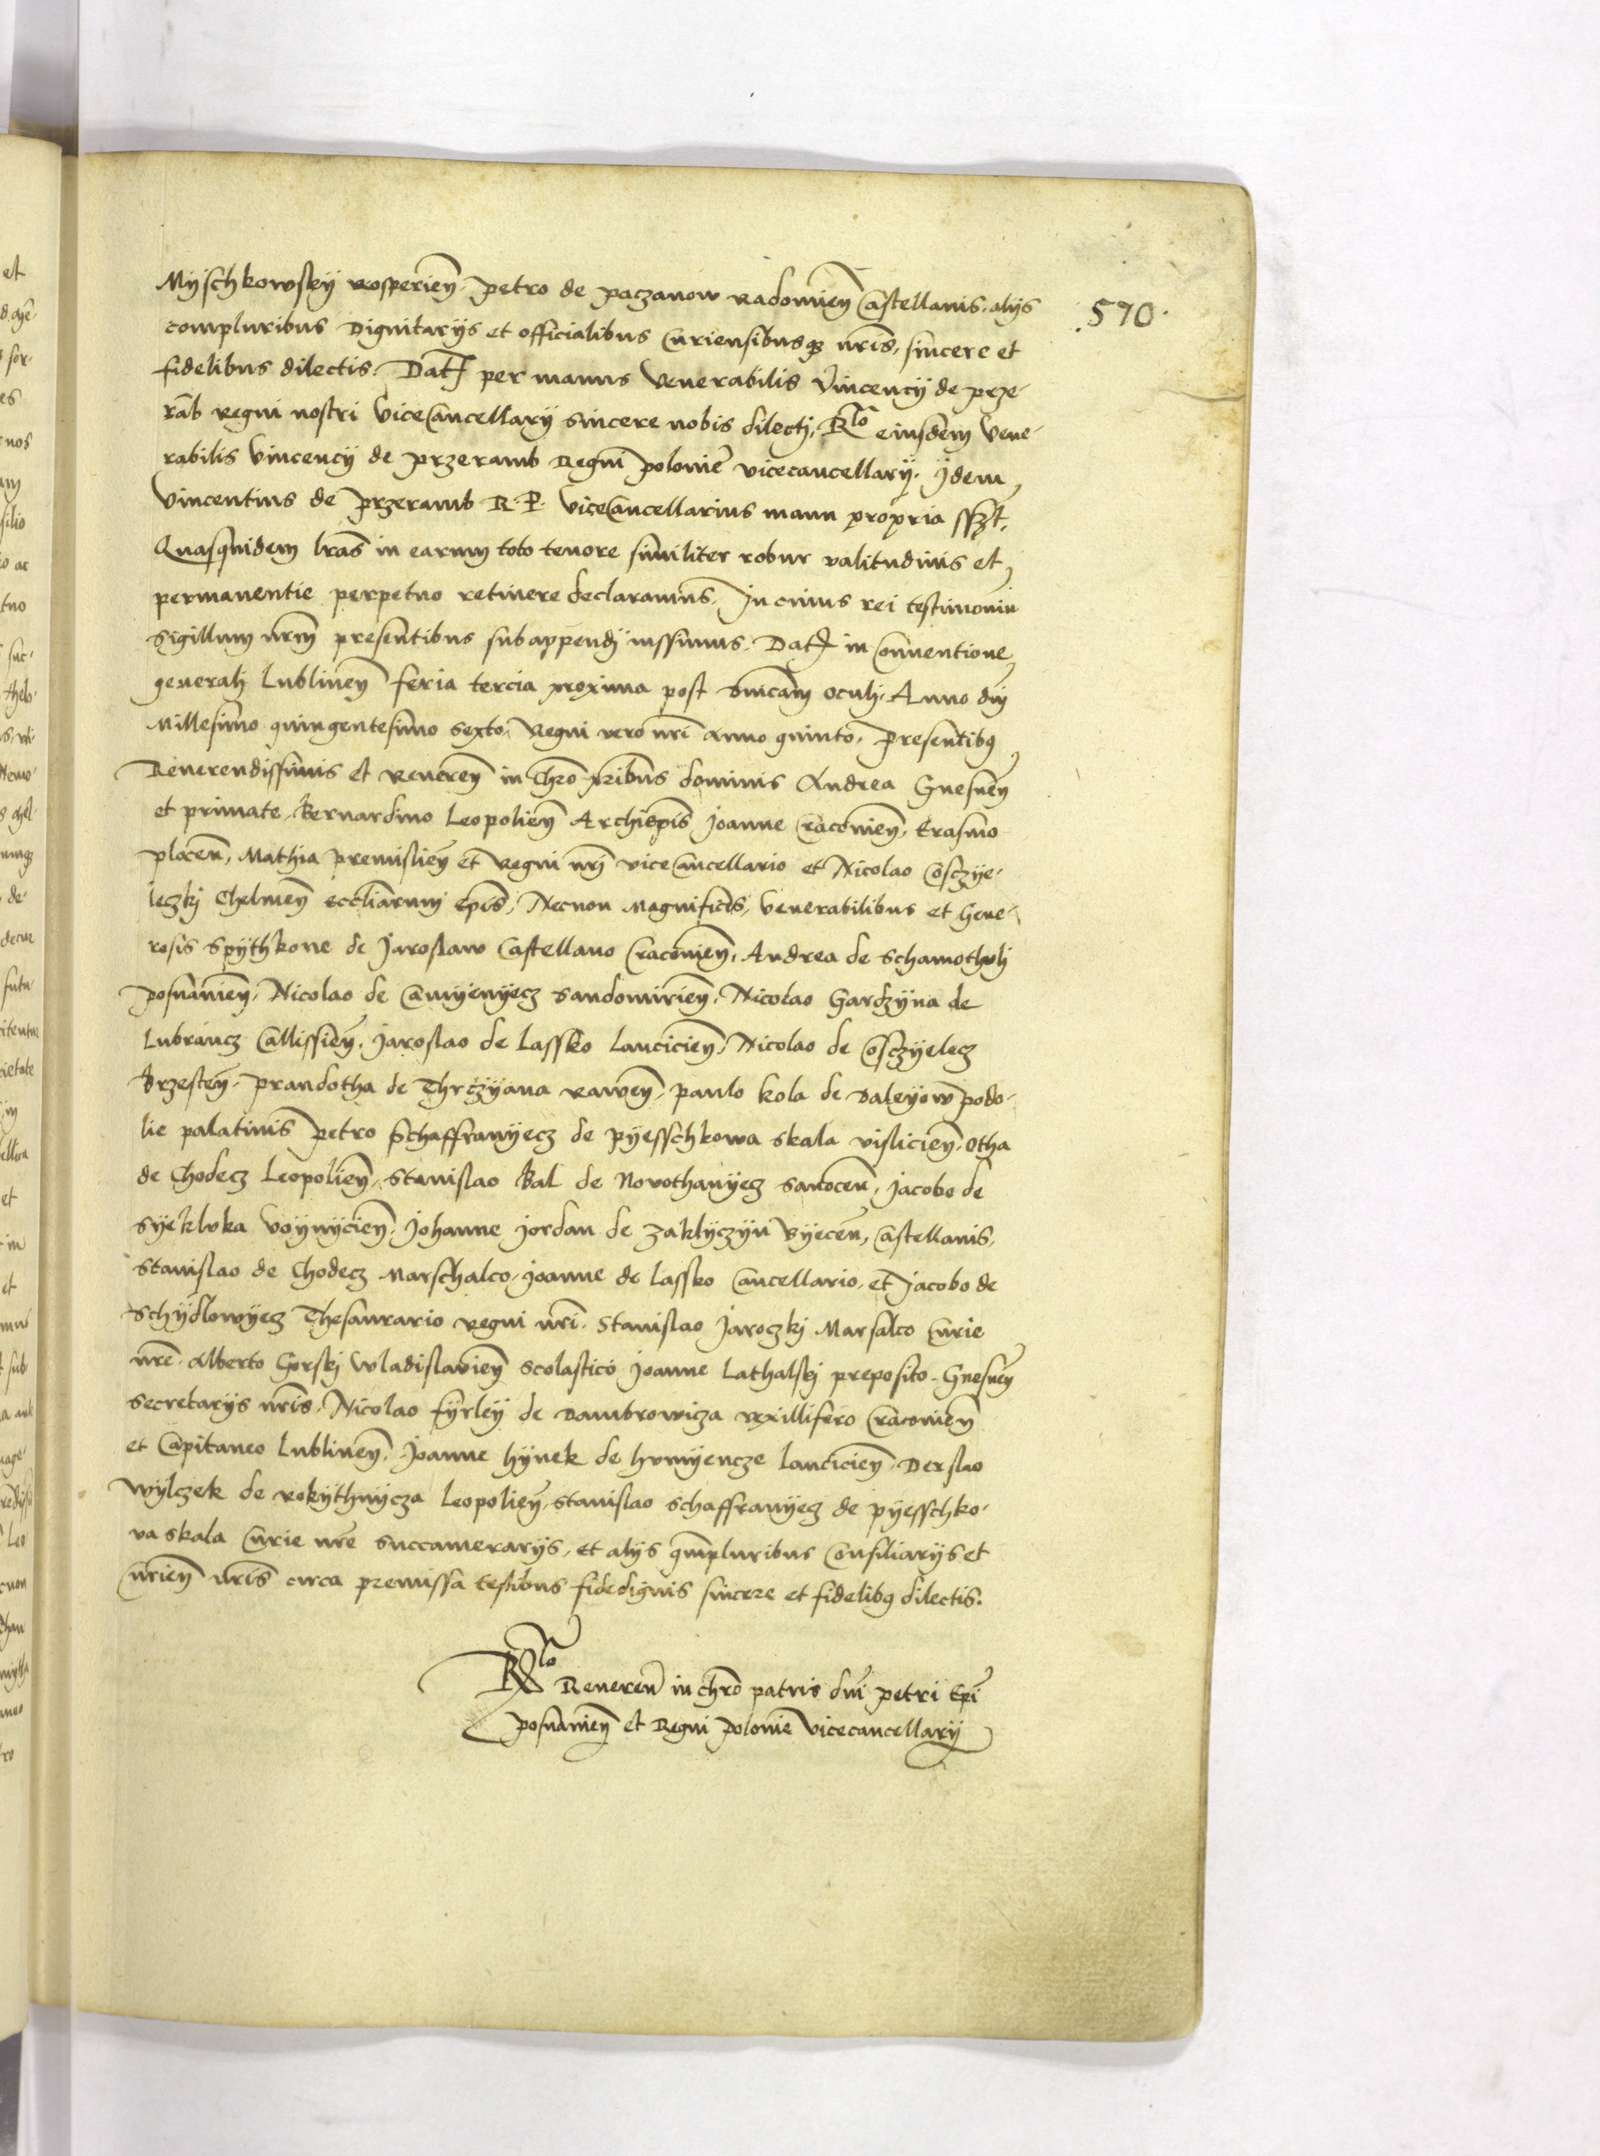 570.
Myschkowsky rosperien̄. petro de paczanow radomien̄ Castellanis. alijs
compluribus Dignitarijs et officialibus Curiensibusqꝫ nr̄is, sincere et
fidelibus dilectis. Dat̄ per manus Venerabilis Vincencij de prze-
rāb regni nostri ViceCancellarij sincere nobis dilectj. R̄lo eiusdem Vene-
rabilis Vincencij de przeramb Regnī poloniē vicecancellarij. Jdem
Vincentius de przeramb R. P. ViceCancellarius manu propria sszt,
Quasquidem l̄ras in earum toto tenore similiter robur valitudinis et
permanentie perpetuo retinere declaramus. In cuius rei testimoniū
Sigillum nr̄m presentibus subappendj iussimus. Dat̄ in Conuentione
generalj Lublinen̄ feria tercia proxima post dnīcam oculj. Anno dnj
Millesimo quingentesimo sexto. Regni vero nr̄i anno quinto. presentibꝰ
Reuerendissimis et reueren̄ in Chr̄o pr̄ibus dominis Andrea Gnesnen̄
et primate. Bernardino Leopolien̄ Archiepīs Joanne Cracouien̄, Erasmo
plocen̄, Mathia premislien̄ et regni nr̄j viceCancellario et Nicolao Cosczye-
leczkj Chelmen̄ eccl̄iarum Epīs, Necnon Magnificis, Venerabilibus et Gene-
rosis Spythkone de Jaroslaw Castellano Cracouien̄, Andrea de Schamothulj
posnanien̄, Nicolao de Camyenyecz Sandomirien̄, Nicolao Gardzyna de
Lubrancz Callissien̄, Jaroslao de Lassko Lancicien̄, Nicolao de Cosczyelecz
Brzesten̄, prandotha de Thrczyana rawen̄, paulo kola de Daleyow podo-
lie palatinis petro Schaffranyecz de pyesschkowa skala vislicien̄, Otha
de Chodecz Leopolien̄, Stanislao Kal de Novothanyecz Sanocen̄, Jacobo de
Syeklvka Voynicien̄, Johanne Jordan de Zaklyczyn Byecen̄, Castellanis.
Stanislao de Chodecz Marschalco, Joanne de Lassko Cancellario, et Jacobo de
Schydlowyecz Thesaurario regni nr̄i. Stanislao Jaroczkj Marsalco Curie
nr̄e. Alberto Gorskj Wladislauien̄ Scolastico Joanne Lathalskj preposito Gnesnen̄
Secretarijs nr̄is, Nicolao fyrley de Dambrowicza vexillifero Cracouien̄
et Capitaneo Lublinen̄. Joanne hynek de hvmyencze Lancicien̄ Derslao
Wylczek de rokythnycza Leopolien̄, Stanislao Schaffranyecz de pyesschko-
va skala Curie nr̄e Succamerarijs, et alijs qmpluribus Consiliarijs et
Curien̄ nr̄is circa premissa testibus fidedignis sincere et fidelibꝰ dilectis.
R̄lo Reueren̄ in chr̄o patris dnī petri Epī
posnanien̄ et Regni polonie Vicecancellarij